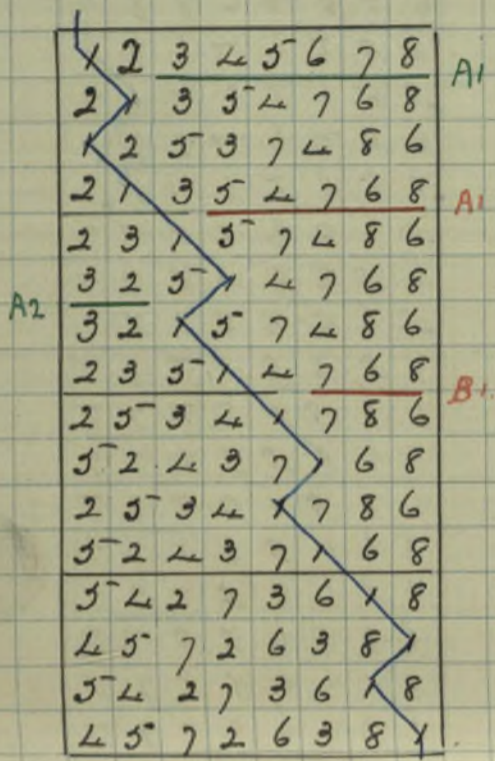 1 2 3 4 5 6 7 8 A1
2 1 3 5 4 7 6 8
1 2 5 3 7 4 8 6
2 1 3 5 4 7 6 8 A1
2 3 1 5 7 4 8 6
3 2 5 1 4 7 6 8
A2 3 2 1 5 7 4 8 6
2 3 5 1 4 7 6 8 B1
2 5 3 4 1 7 8 6
5 2 4 3 7 1 6 8
2 5 3 4 1 7 8 6
5 2 4 3 7 1 6 8
5 4 2 7 3 6 1 8
4 5 7 2 6 3 8 1
5 4 2 7 3 6 1 8
4 5 7 2 6 3 8 1